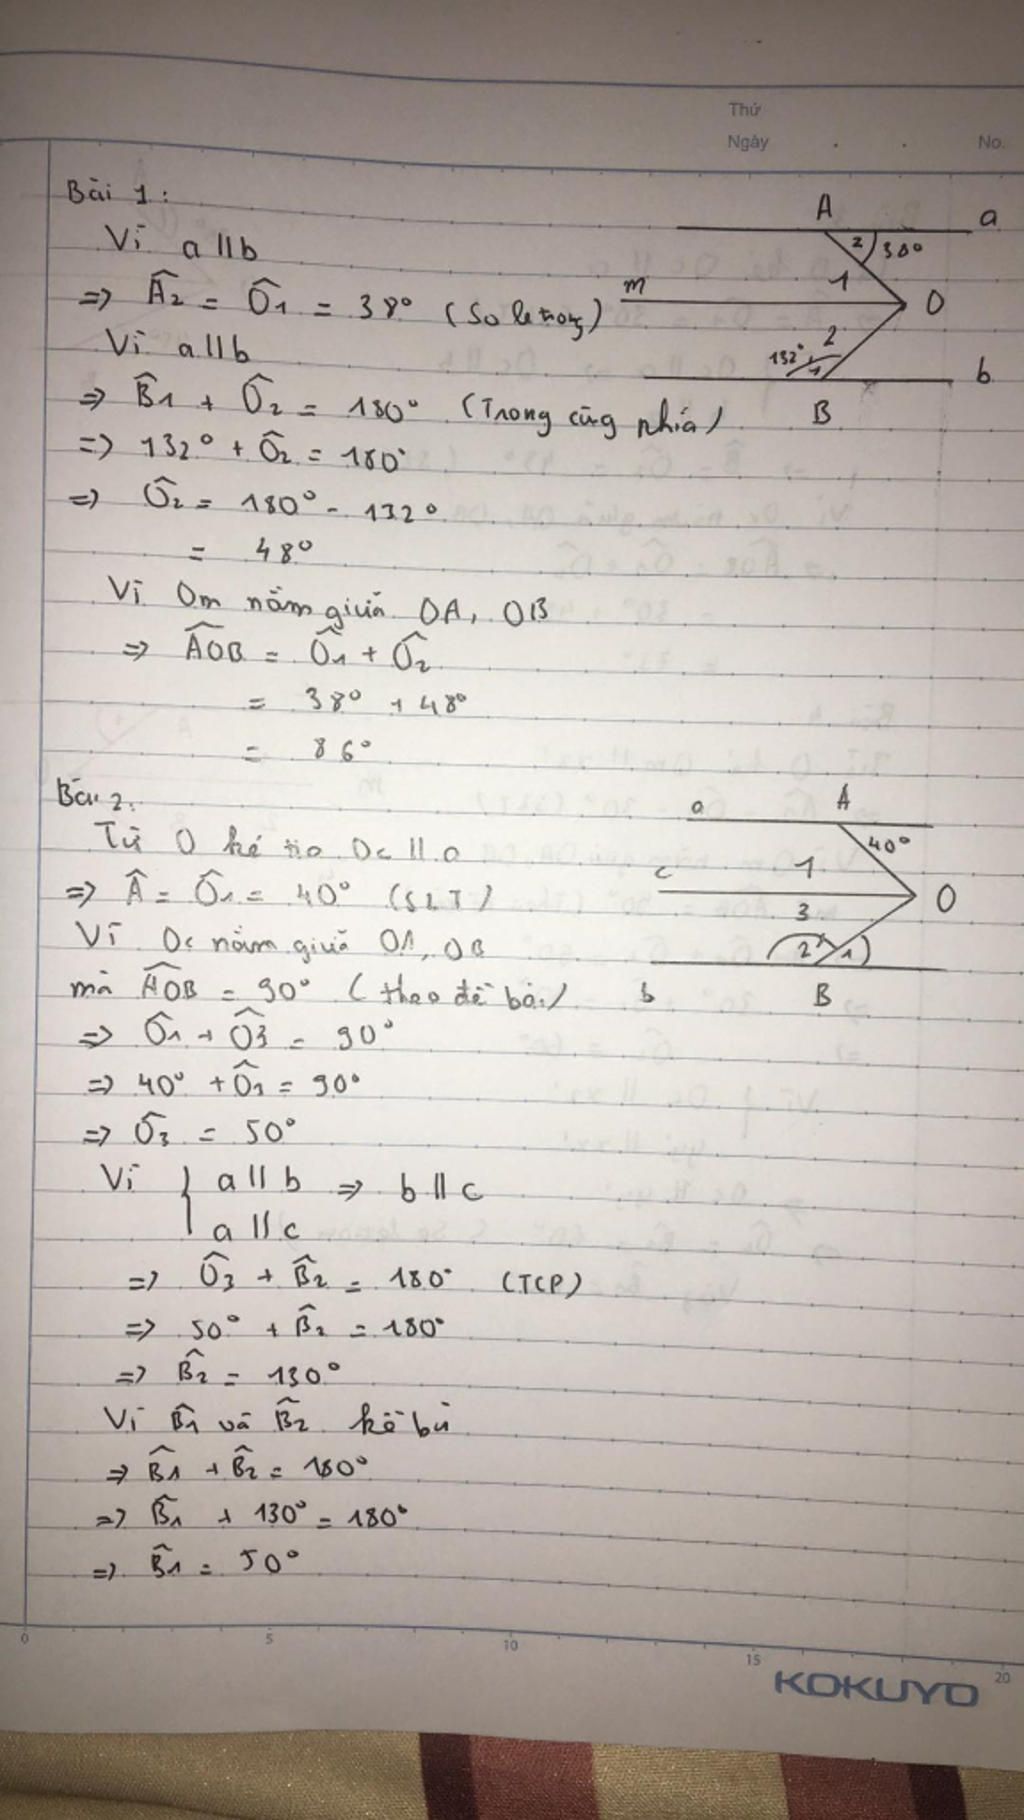 Thứ
Ngày . . No.
Bài 1:
Vì a // b
=> Â2 = Ô1 = 38° (So le trong)
Vì a // b
=> B̂1 + Ô2 = 180° (Trong cùng phía)
=> 132° + Ô2 = 180°
=> Ô2 = 180° - 132°
= 48°
Vì Om nằm giữa OA, OB
=> AOB = Ô1 + Ô2
= 38° + 48°
= 86°
A a
2 38°
m 1 O
2
132° 1 b
B
Bài 2:
Từ O kẻ tia Oc // a
=> Â = Ô1 = 40° (SLT)
Vì Oc nằm giữa OA, OB
mà AOB = 90° (theo đề bài)
=> Ô1 + Ô3 = 90°
=> 40° + Ô3 = 90°
=> Ô3 = 50°
Vì { a // b => b // c
a // c
=> Ô3 + B̂2 = 180° (TCP)
=> 50° + B̂2 = 180°
=> B̂2 = 130°
Vì B̂1 và B̂2 kề bù
=> B̂1 + B̂2 = 180°
=> B̂1 + 130° = 180°
=> B̂1 = 50°
a A
40°
c 1 O
3
2 1
b B
0 5 10 15 20
KOKUYO